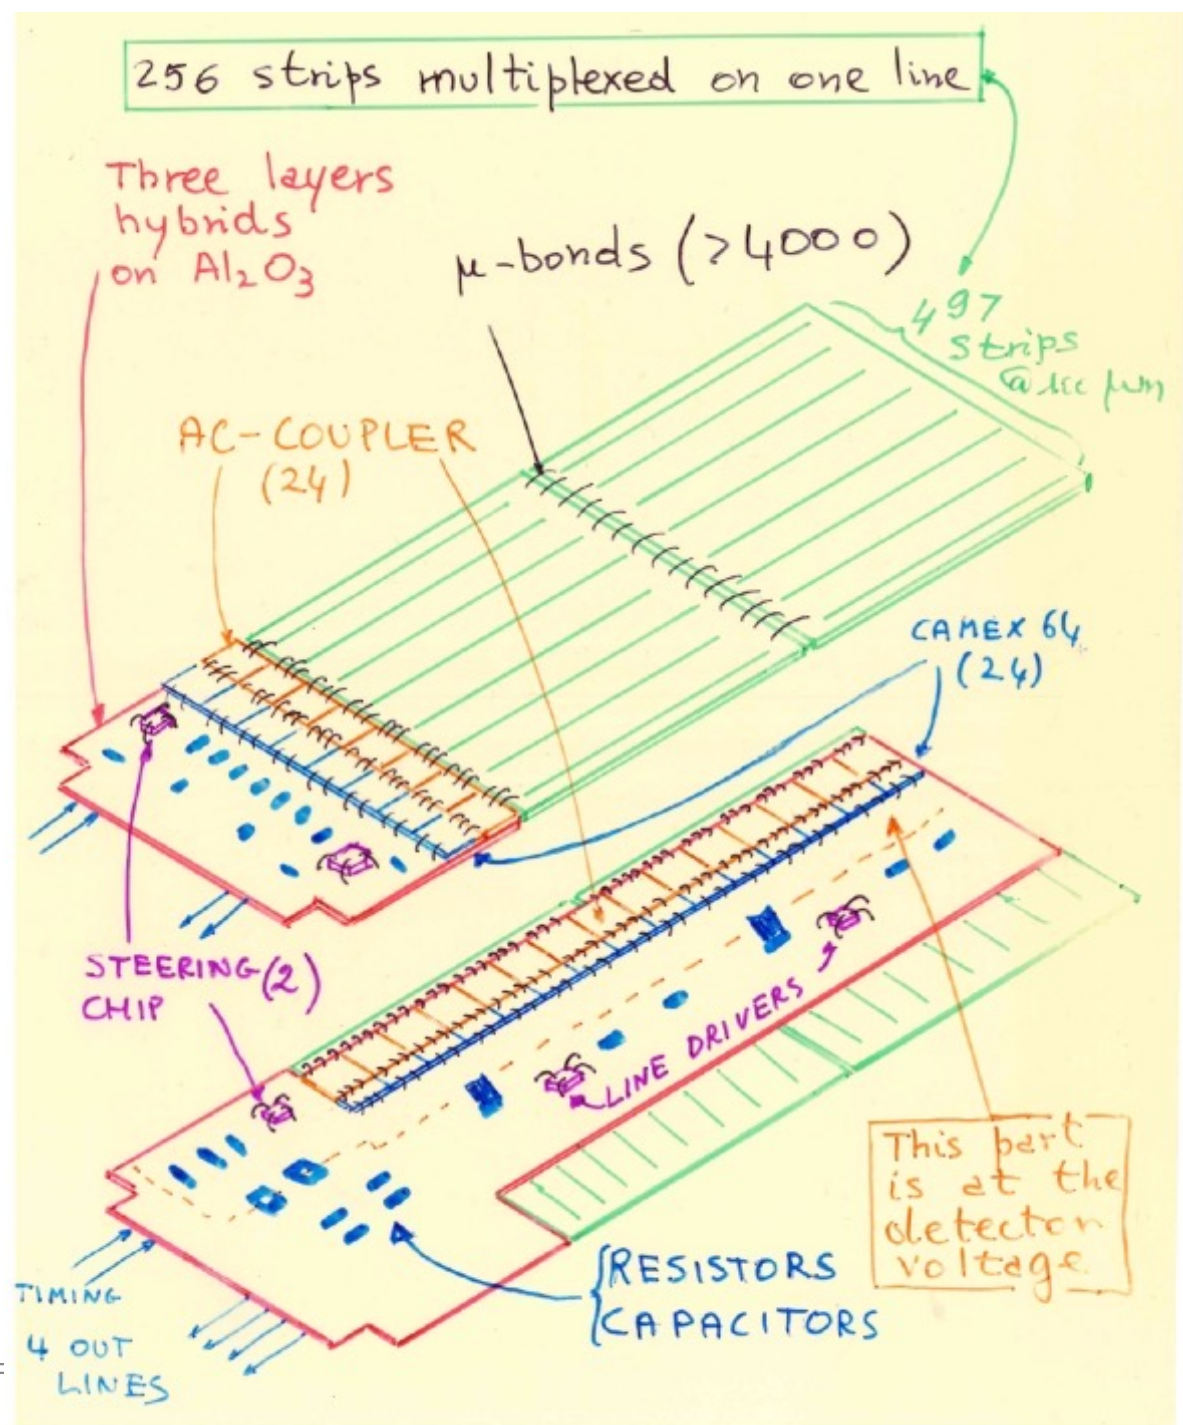 256 strips multiplexed on one line
Three layers
hybrids
on Al₂O₃
μ-bonds (>4000)
497
strips
@
μm
AC-COUPLER
(24)
CAMEX 64
(24)
STEERING (2)
CHIP
LINE DRIVERS
This part
is at the
detector
voltage
RESISTORS
CAPACITORS
TIMING
4 OUT
LINES